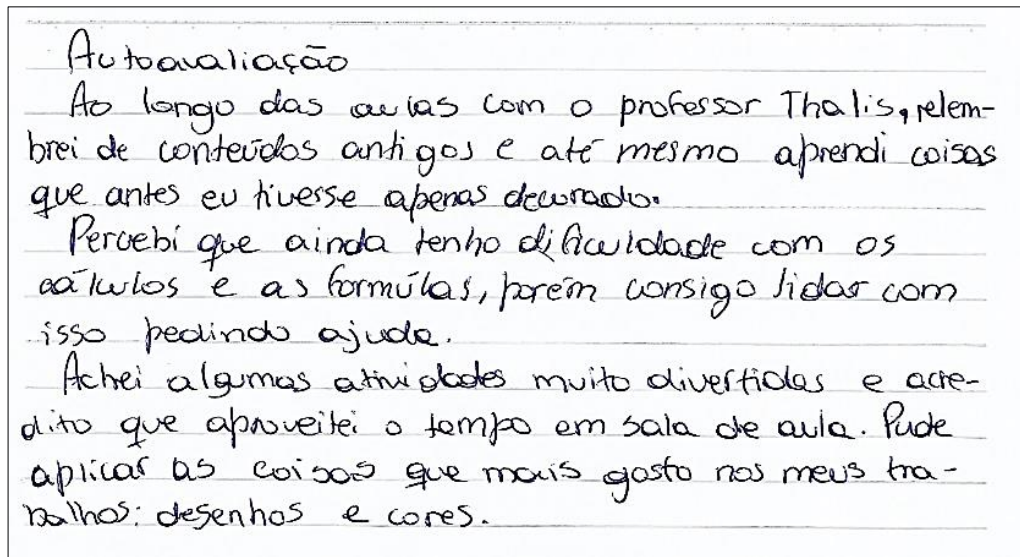 Autoavaliação
Ao longo das aulas com o professor Thalis, relem-
brei de conteúdos antigos e até mesmo aprendi coisas
que antes eu tivesse apenas decorado.
Percebi que ainda tenho dificuldade com os
cálculos e as formúlas, porém consigo lidar com
isso pedindo ajuda.
Achei algumas atividades muito divertidas e acre-
dito que aproveitei o tempo em sala de aula. Pude
aplicar as coisas que mais gosto nos meus tra-
balhos: desenhos e cores.